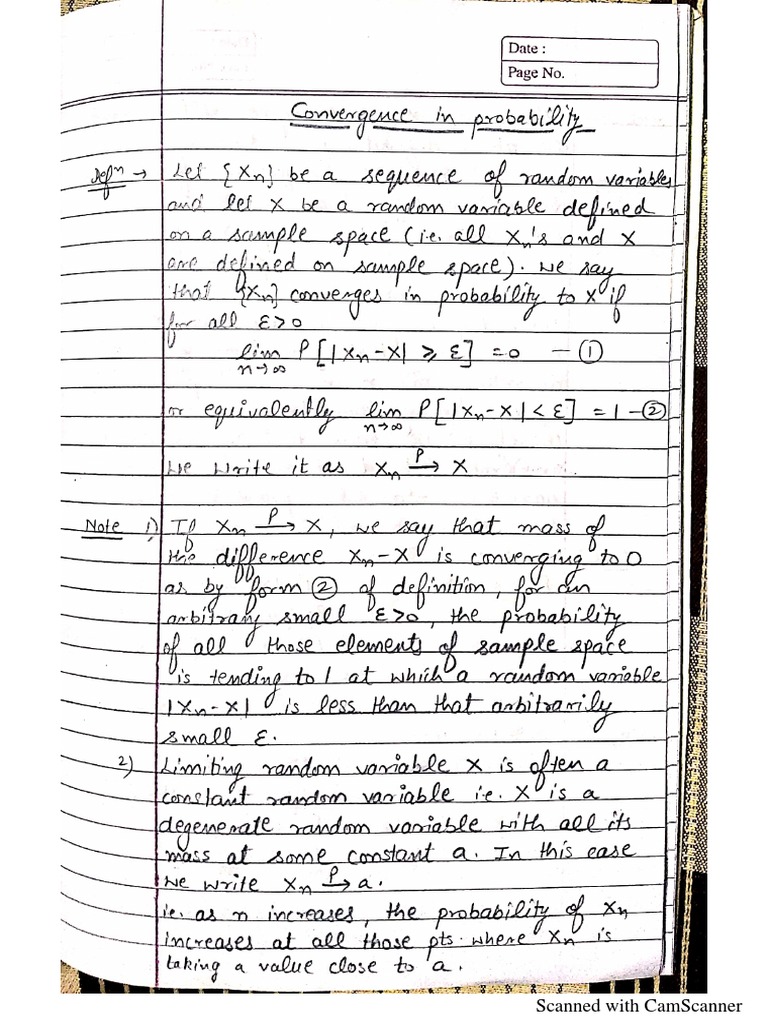 Date :
Page No.
Convergence in probability
Defⁿ → Let {Xn} be a sequence of random variables
and let X be a random variable defined
on a sample space (i.e. all Xn's and X
are defined on sample space). We say
that {Xn} converges in probability to X if
for all ε>0
lim n→∞ P[|Xn-X| ⩾ ε] = 0 — ①
or equivalently lim n→∞ P[|Xn-X|< ε] = 1 — ②
We write it as Xn →ᴾ X
Note 1) If Xn →ᴾ X, we say that mass of
the difference Xn-X is converging to 0
as by form ② of definition, for an
arbitrary small ε>0, the probability
of all those elements of sample space
is tending to 1 at which a random variable
|Xn-X| is less than that arbitrarily
small ε.
2) Limiting random variable X is often a
constant random variable i.e. X is a
degenerate random variable with all its
mass at some constant a. In this case
we write Xn →ᴾ a.
i.e. as n increases, the probability of Xn
increases at all those pts. where Xn is
taking a value close to a.
Scanned with CamScanner